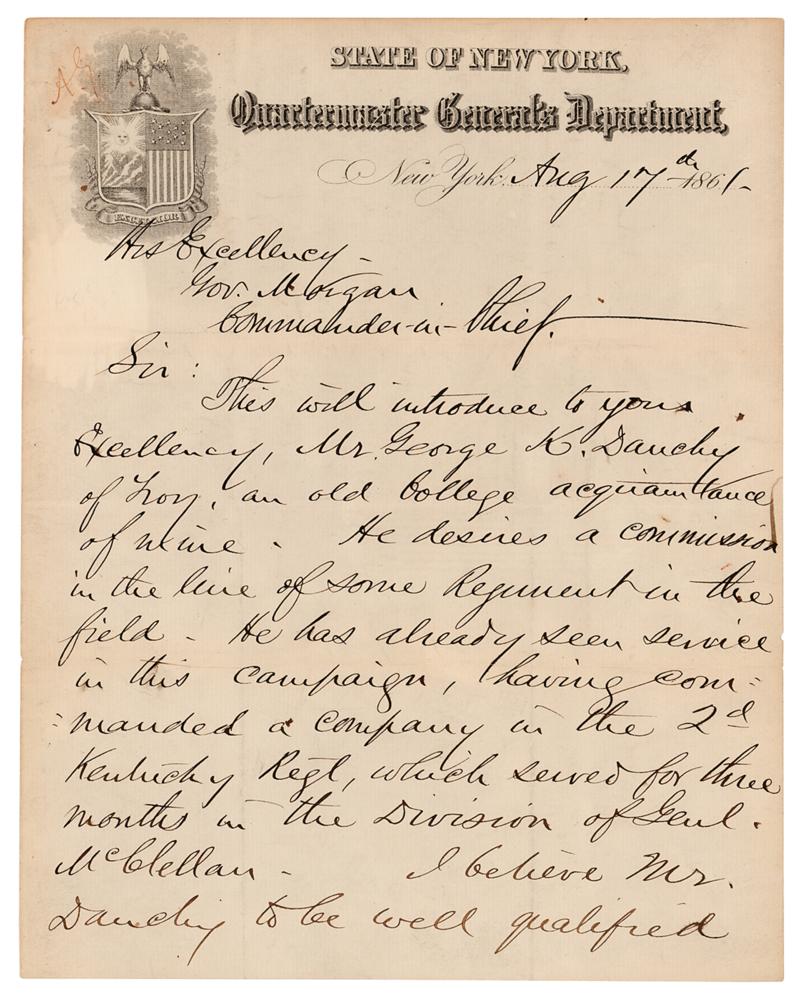 STATE OF NEW YORK,
Quartermaster General's Department,
New York, Aug 17th 1861-
EXCELSIOR
His Excellency -
Gov. Morgan
Commander-in-Chief.
Sir :
This will introduce to your
Excellency, Mr. George K. Dauchy
of Troy, an old College acquaintance
of mine - He desires a commission
in the line of some Regiment in the
field - He has already seen service
in this campaign, having com=
=manded a company in the 2d
Kentucky Regt, which served for three
months in the Division of Genl.
McClellan - I believe Mr.
Dauchy to be well qualified